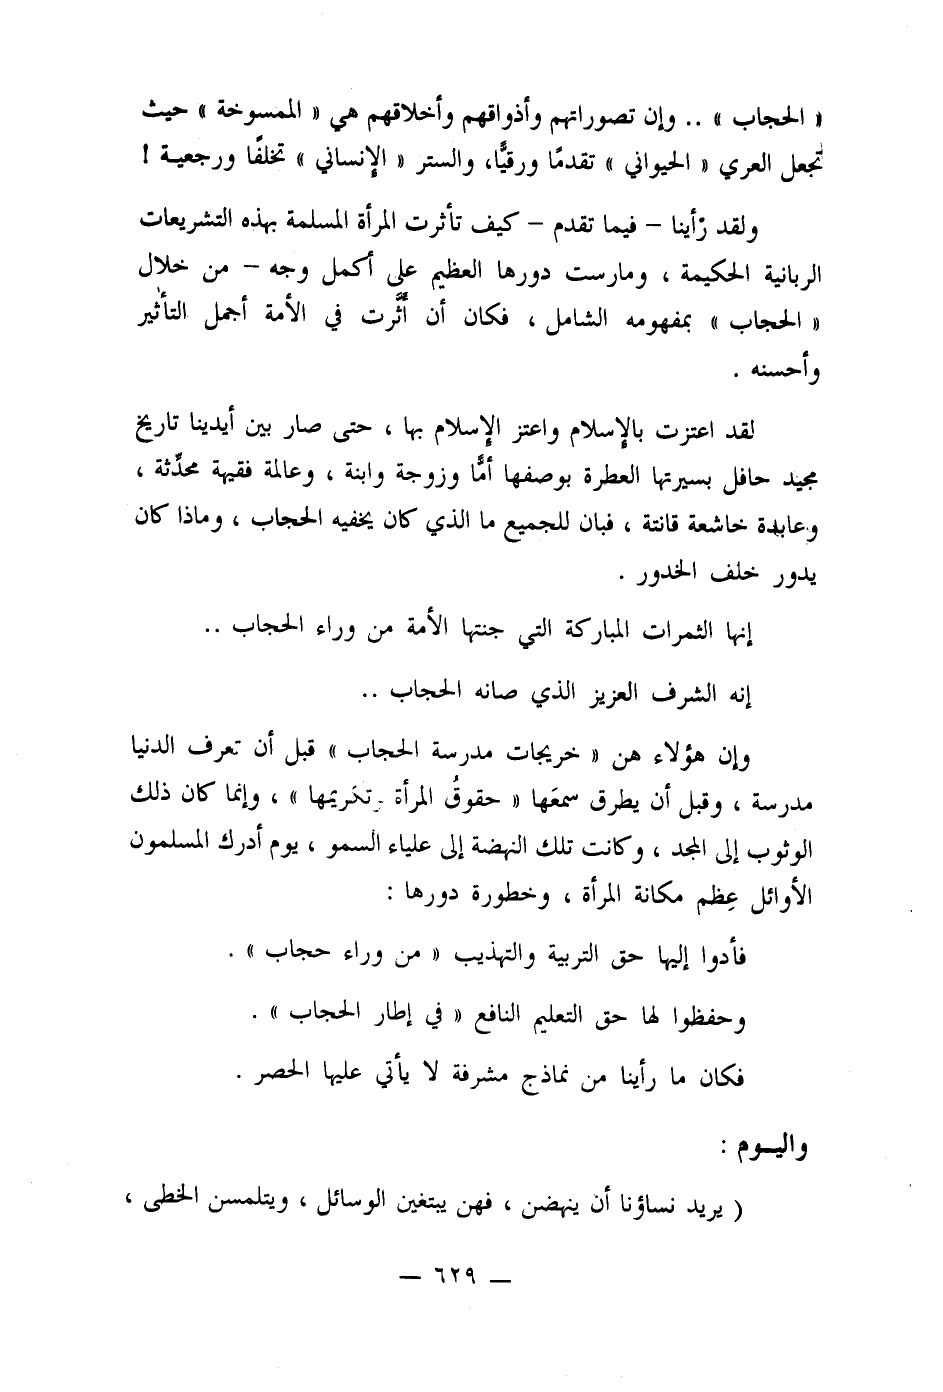 « الحجاب » .. وإن تصوراتهم وأذواقهم وأخلاقهم هي « الممسوخة » حيث
تجعل العري « الحيواني » تقدمًا ورقيًّا، والستر « الإنساني » تخلفًا ورجعية !
ولقد رأينا – فيما تقدم – كيف تأثرت المرأة المسلمة بهذه التشريعات
الربانية الحكيمة ، ومارست دورها العظيم على أكمل وجه – من خلال
« الحجاب » بمفهومه الشامل ، فكان أن أثَّرت في الأمة أجمل التأثير
وأحسنه .
لقد اعتزت بالإسلام واعتز الإسلام بها ، حتى صار بين أيدينا تاريخ
مجيد حافل بسيرتها العطرة بوصفها أمًّا وزوجة وابنة ، وعالمة فقيهة محدِّثة ،
وعابدة خاشعة قانتة ، فبان للجميع ما الذي كان يخفيه الحجاب ، وماذا كان
يدور خلف الخدور .
إنها الثمرات المباركة التي جنتها الأمة من وراء الحجاب ..
إنه الشرف العزيز الذي صانه الحجاب ..
وإن هؤلاء هن « خريجات مدرسة الحجاب » قبل أن تعرف الدنيا
مدرسة ، وقبل أن يطرق سمعَها « حقوقُ المرأة وتكريمها » ، وإنما كان ذلك
الوثوب إلى المجد ، وكانت تلك النهضة إلى علياء السمو ، يوم أدرك المسلمون
الأوائل عِظم مكانة المرأة ، وخطورة دورها :
فأدوا إليها حق التربية والتهذيب « من وراء حجاب » .
وحفظوا لها حق التعليم النافع « في إطار الحجاب » .
فكان ما رأينا من نماذج مشرفة لا يأتي عليها الحصر .
واليــوم :
( يريد نساؤنا أن ينهضن ، فهن يبتغين الوسائل ، ويتلمسن الخطى ،
— ٦٢٩ —